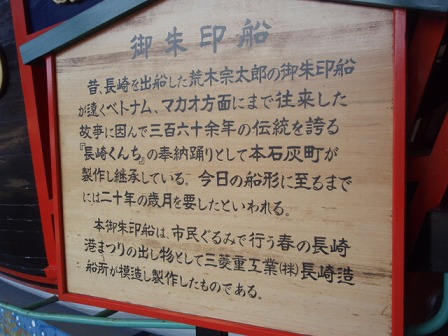 御朱印船
昔、長崎を出船した荒木宗太郎の御朱印船
が遠くベトナム、マカオ方面にまで往来した
故事に因んで三百六十余年の伝統を誇る
『長崎くんち』の奉納踊りとして本石灰町が
製作し継承している。今日の船形に至るまで
には二十年の歳月を要したといわれる。
本御朱印船は、市民ぐるみで行う春の長崎
港まつりの出し物として三菱重工業㈱長崎造
船所が模造し製作したものである。